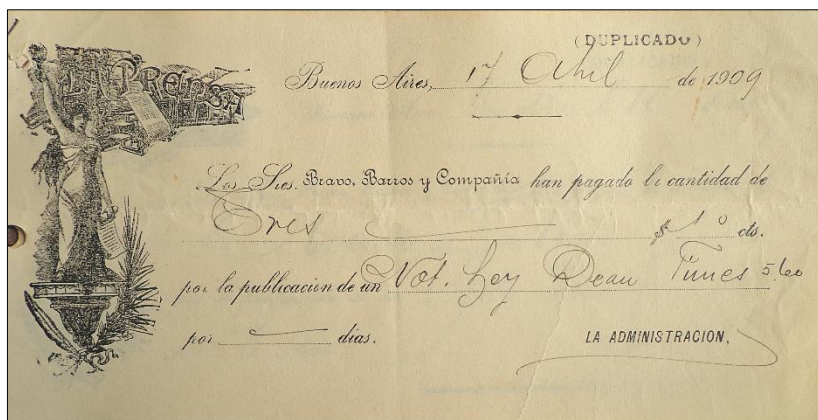 (DUPLICADO)
LA PRENSA
Buenos Aires, 17 Abril de 1909
Los Sres. Bravo, Barros y Compañía han pagado la cantidad de
Tres $ cts.
por la publicacion de un Not. Ley Dean Funes 5.60
por dias.
LA ADMINISTRACION,